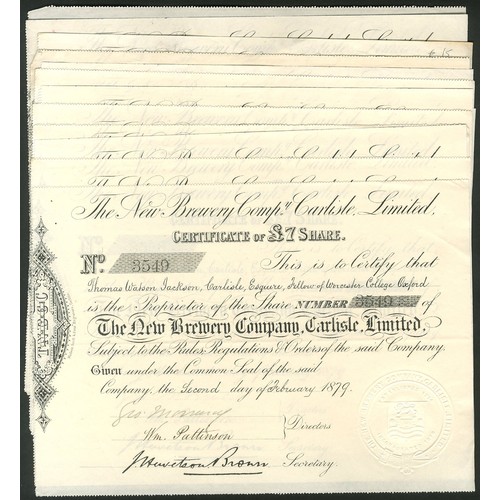 The New Brewery Compy. Carlisle, Limited.
CERTIFICATE OF £7 SHARE.
No. 3549 This is to Certify that
Thomas Watson Jackson, Carlisle, Esquire, Fellow of Worcester College Oxford
is the Proprietor of the Share NUMBER 3549 of
The New Brewery Company, Carlisle, Limited,
Subject to the Rules, Regulations & Orders of the said Company.
Given under the Common Seal of the said
Company, the Second day of February 1879.
Wm. Pattinson
Directors
Secretary.